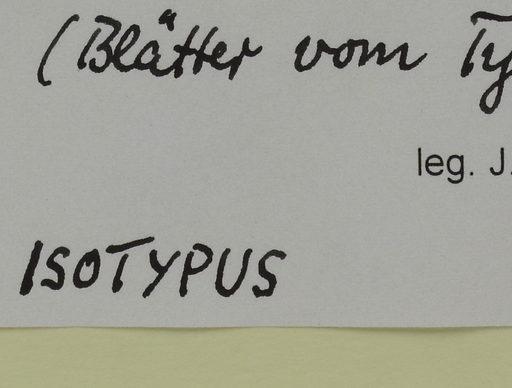 (Blätter vom Ty
leg. J.
ISOTYPUS